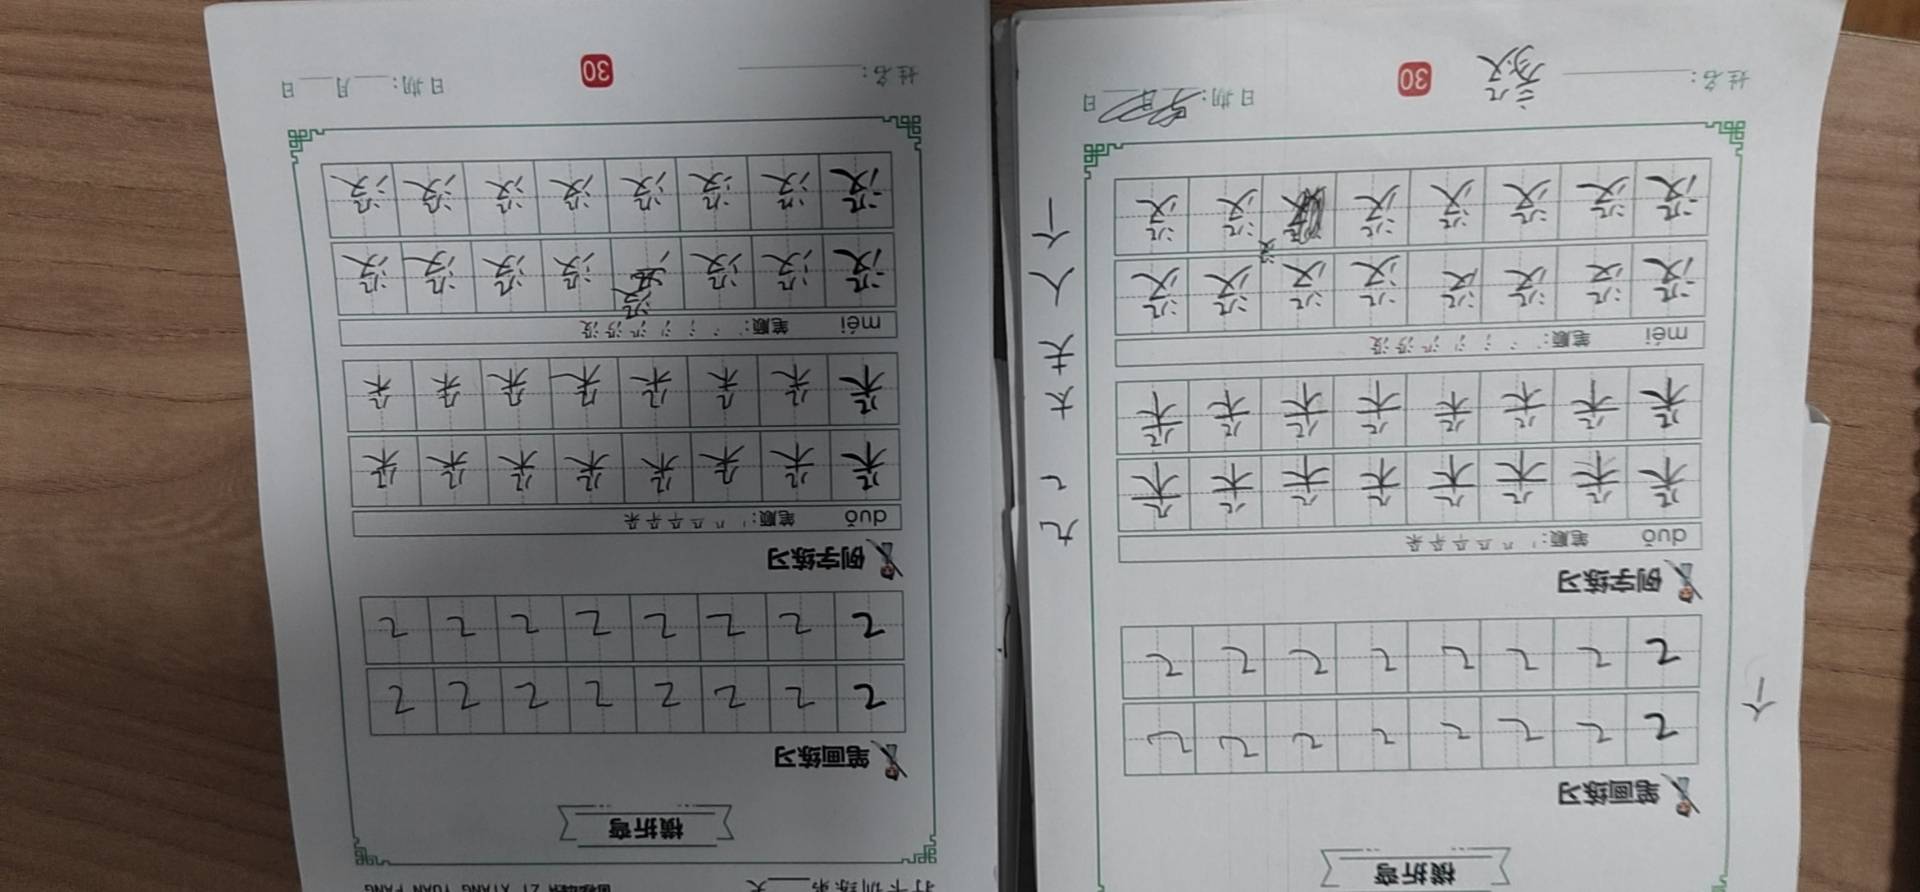 横折弯
笔画练习
㇍ ㇍ ㇍ ㇍ ㇍ ㇍ ㇍ ㇍
㇍ ㇍ ㇍ ㇍ ㇍ ㇍ ㇍ ㇍
个
例字练习
duǒ 笔顺:
朵 朵 朵 朵 朵 朵 朵 朵
朵 朵 朵 朵 朵 朵 朵 朵
méi 笔顺:
没 没 没 没 没 没 没 没
没 没 没 没 没 没 没
没
九
㇍
大
夫
人
个
姓名: 30 日期: 日
没
打卡训练第 天 ZI XIANG YUAN FANG
横折弯
笔画练习
㇍ ㇍ ㇍ ㇍ ㇍ ㇍ ㇍ ㇍
㇍ ㇍ ㇍ ㇍ ㇍ ㇍ ㇍ ㇍
例字练习
duǒ 笔顺:
朵 朵 朵 朵 朵 朵 朵 朵
朵 朵 朵 朵 朵 朵 朵 朵
méi 笔顺:
没 没 没 没 没 没 没
没 没 没 没 没 没 没 没
姓名: 30 日期: 月 日